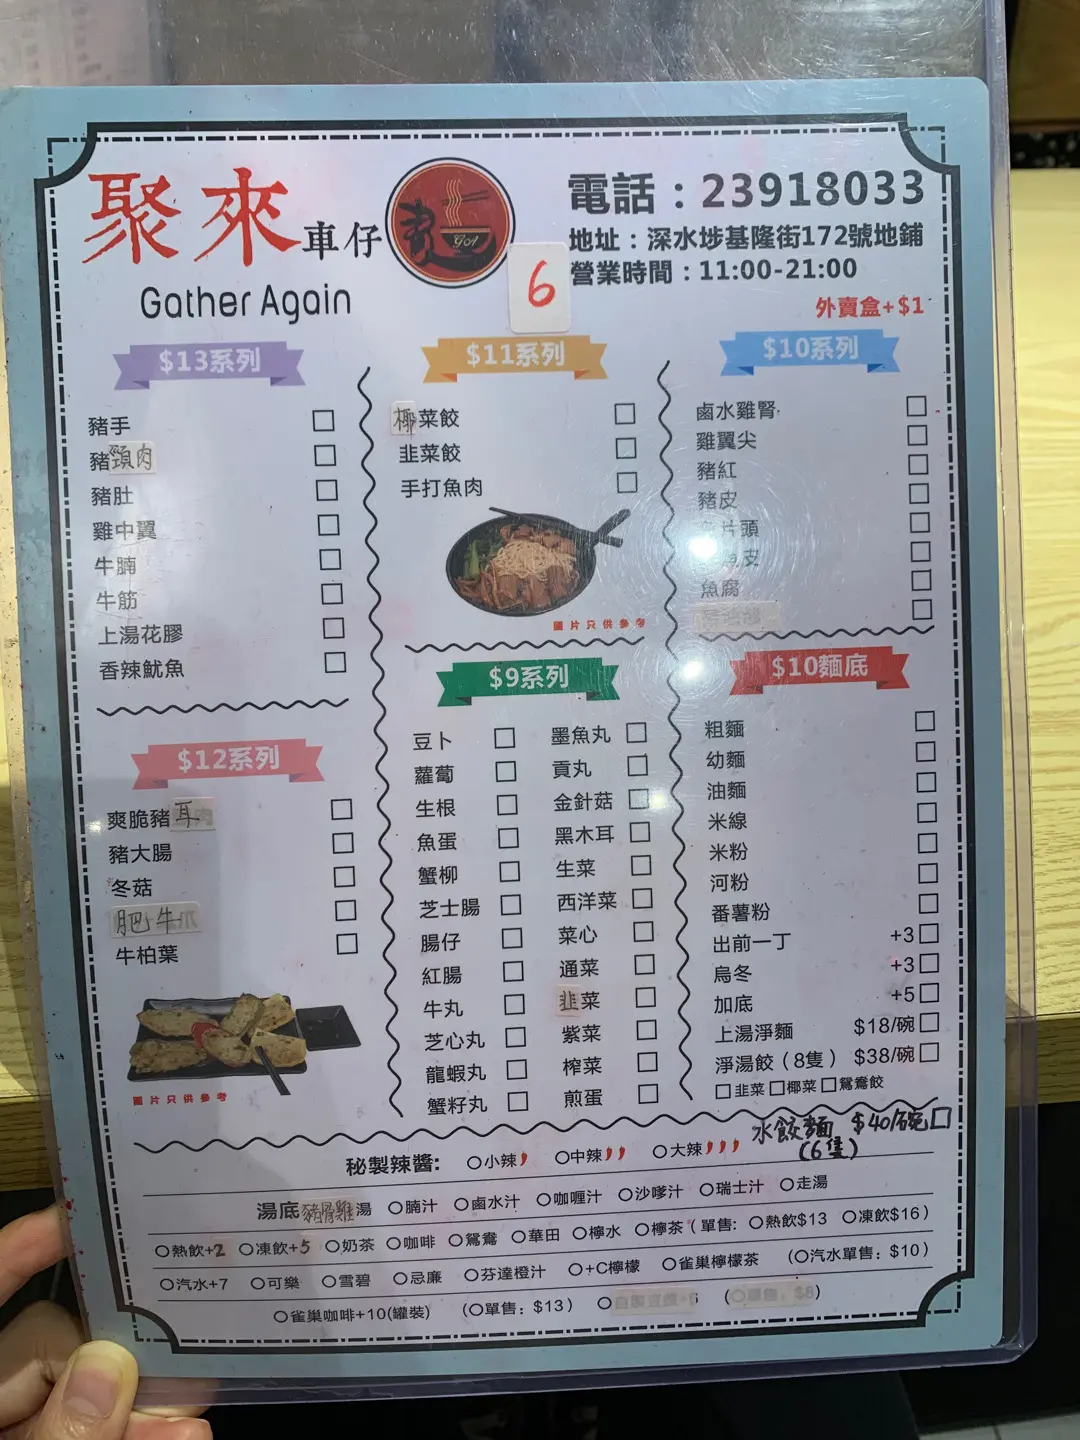 聚來車仔
Gather Again
電話：23918033
地址：深水埗基隆街172號地鋪
營業時間：11:00-21:00
6
外賣盒+$1
$13系列
豬手
豬頸肉
豬肚
雞中翼
牛腩
牛筋
上湯花膠
香辣魷魚
$12系列
爽脆豬耳
豬大腸
冬菇
肥牛
牛柏葉
圖片只供參考
$11系列
椰菜餃
韭菜餃
手打魚肉
圖片只供參考
$9系列
豆卜
蘿蔔
生根
魚蛋
蟹柳
芝士腸
腸仔
紅腸
牛丸
芝心丸
龍蝦丸
蟹籽丸
墨魚丸
貢丸
金針菇
黑木耳
生菜
西洋菜
菜心
通菜
韭菜
紫菜
榨菜
煎蛋
$10系列
鹵水雞腎
雞翼尖
豬紅
豬皮
片頭
皮
魚腐
$10麵底
粗麵
幼麵
油麵
米線
米粉
河粉
番薯粉
出前一丁 +3
烏冬 +3
加底 +5
上湯淨麵 $18/碗
淨湯餃（8隻）$38/碗
韭菜 椰菜 鴛鴦餃
水餃麵 $40/碗
(6隻)
秘製辣醬: 小辣 中辣 大辣
湯底 豬骨雞湯 腩汁 鹵水汁 咖喱汁 沙嗲汁 瑞士汁 走湯
熱飲+2 凍飲+5 奶茶 咖啡 鴛鴦 華田 檸水 檸茶（單售: 熱飲$13 凍飲$16）
汽水+7 可樂 雪碧 忌廉 芬達橙汁 +C檸檬 雀巢檸檬茶 （汽水單售: $10）
雀巢咖啡+10(罐裝) （單售: $13）